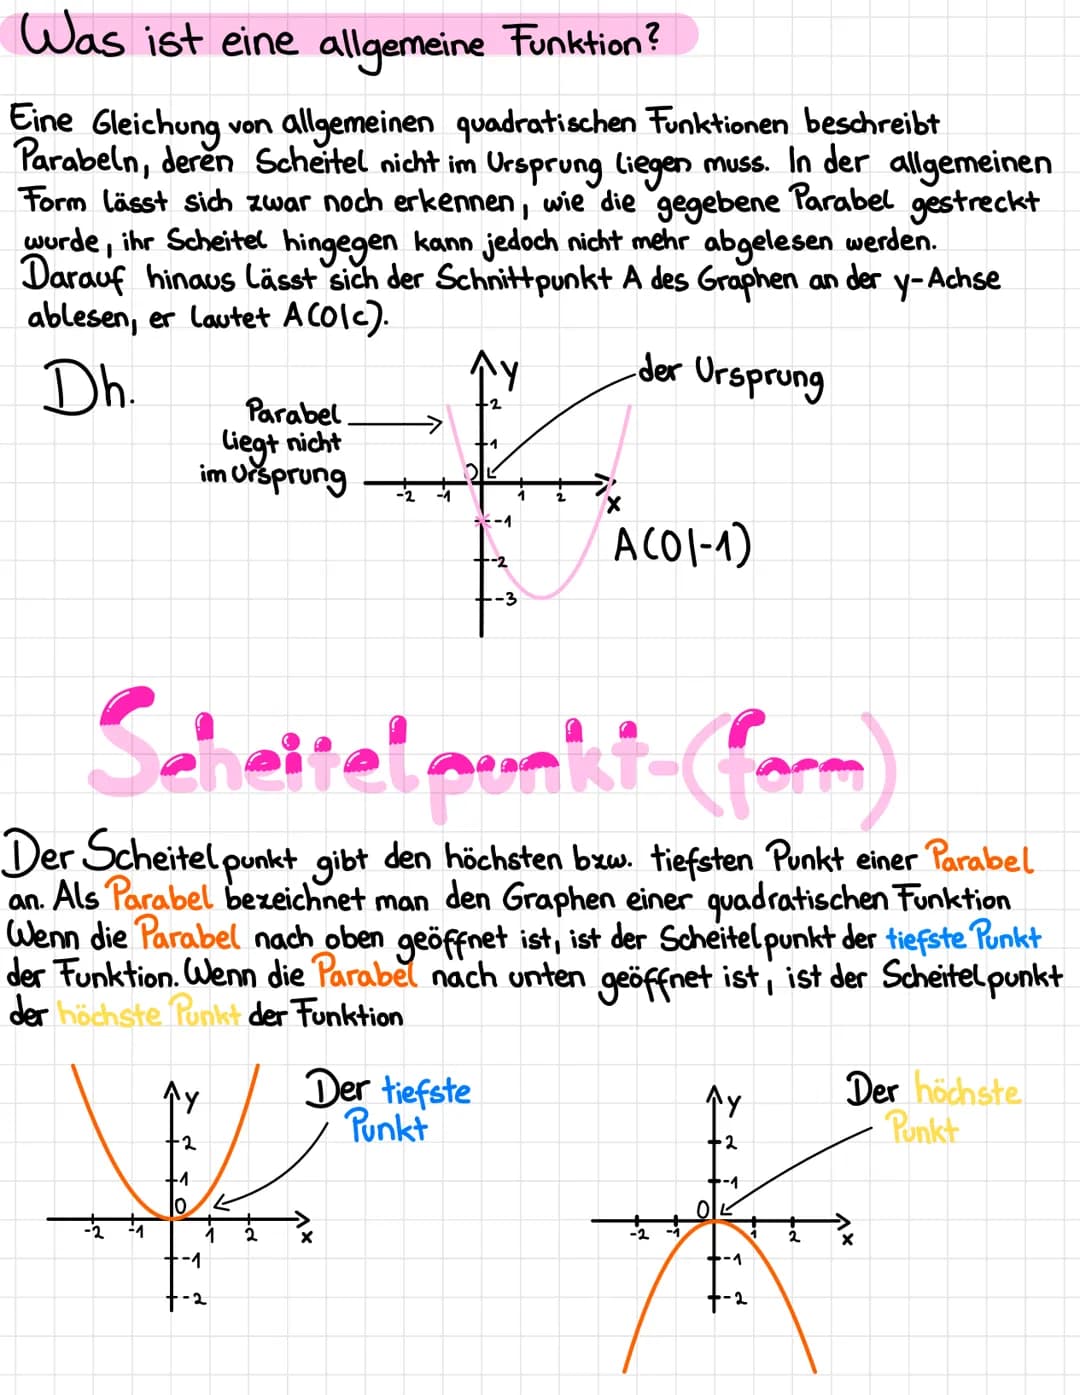 Was ist eine allgemeine Funktion?
Eine Gleichung von allgemeinen quadratischen Funktionen beschreibt
Parabeln, deren Scheitel nicht im Ursprung liegen muss. In der allgemeinen
Form lässt sich zwar noch erkennen, wie die gegebene Parabel gestreckt
wurde, ihr Scheitel hingegen kann jedoch nicht mehr abgelesen werden.
Darauf hinaus lässt sich der Schnittpunkt A des Graphen an der y-Achse
ablesen, er lautet A(0|c).
Dh.
Parabel
liegt nicht
im Ursprung
y
der Ursprung
2
1
0
-2 -1 1 2
x
-1
-2
-3
A(0|-1)
Scheitelpunkt-(form)
Der Scheitelpunkt gibt den höchsten bzw. tiefsten Punkt einer Parabel
an. Als Parabel bezeichnet man den Graphen einer quadratischen Funktion
Wenn die Parabel nach oben geöffnet ist, ist der Scheitelpunkt der tiefste Punkt
der Funktion. Wenn die Parabel nach unten geöffnet ist, ist der Scheitelpunkt
der höchste Punkt der Funktion
y
Der tiefste
Punkt
2
1
0
-2 -1 1 2
x
-1
-2
y
Der höchste
Punkt
2
-1
0
-2 -1 1 2
x
-1
-2